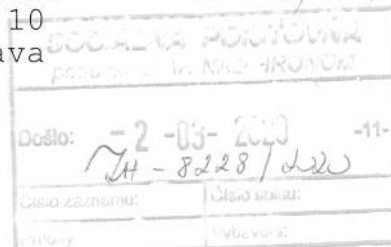 10
ava
SOCIÁLNA POISŤOVŇA
Došlo: - 2 -03- 2020 -11-
ZH - 8228 / 2020
Číslo záznamu: Číslo spisu:
Prílohy: Vybavuje: